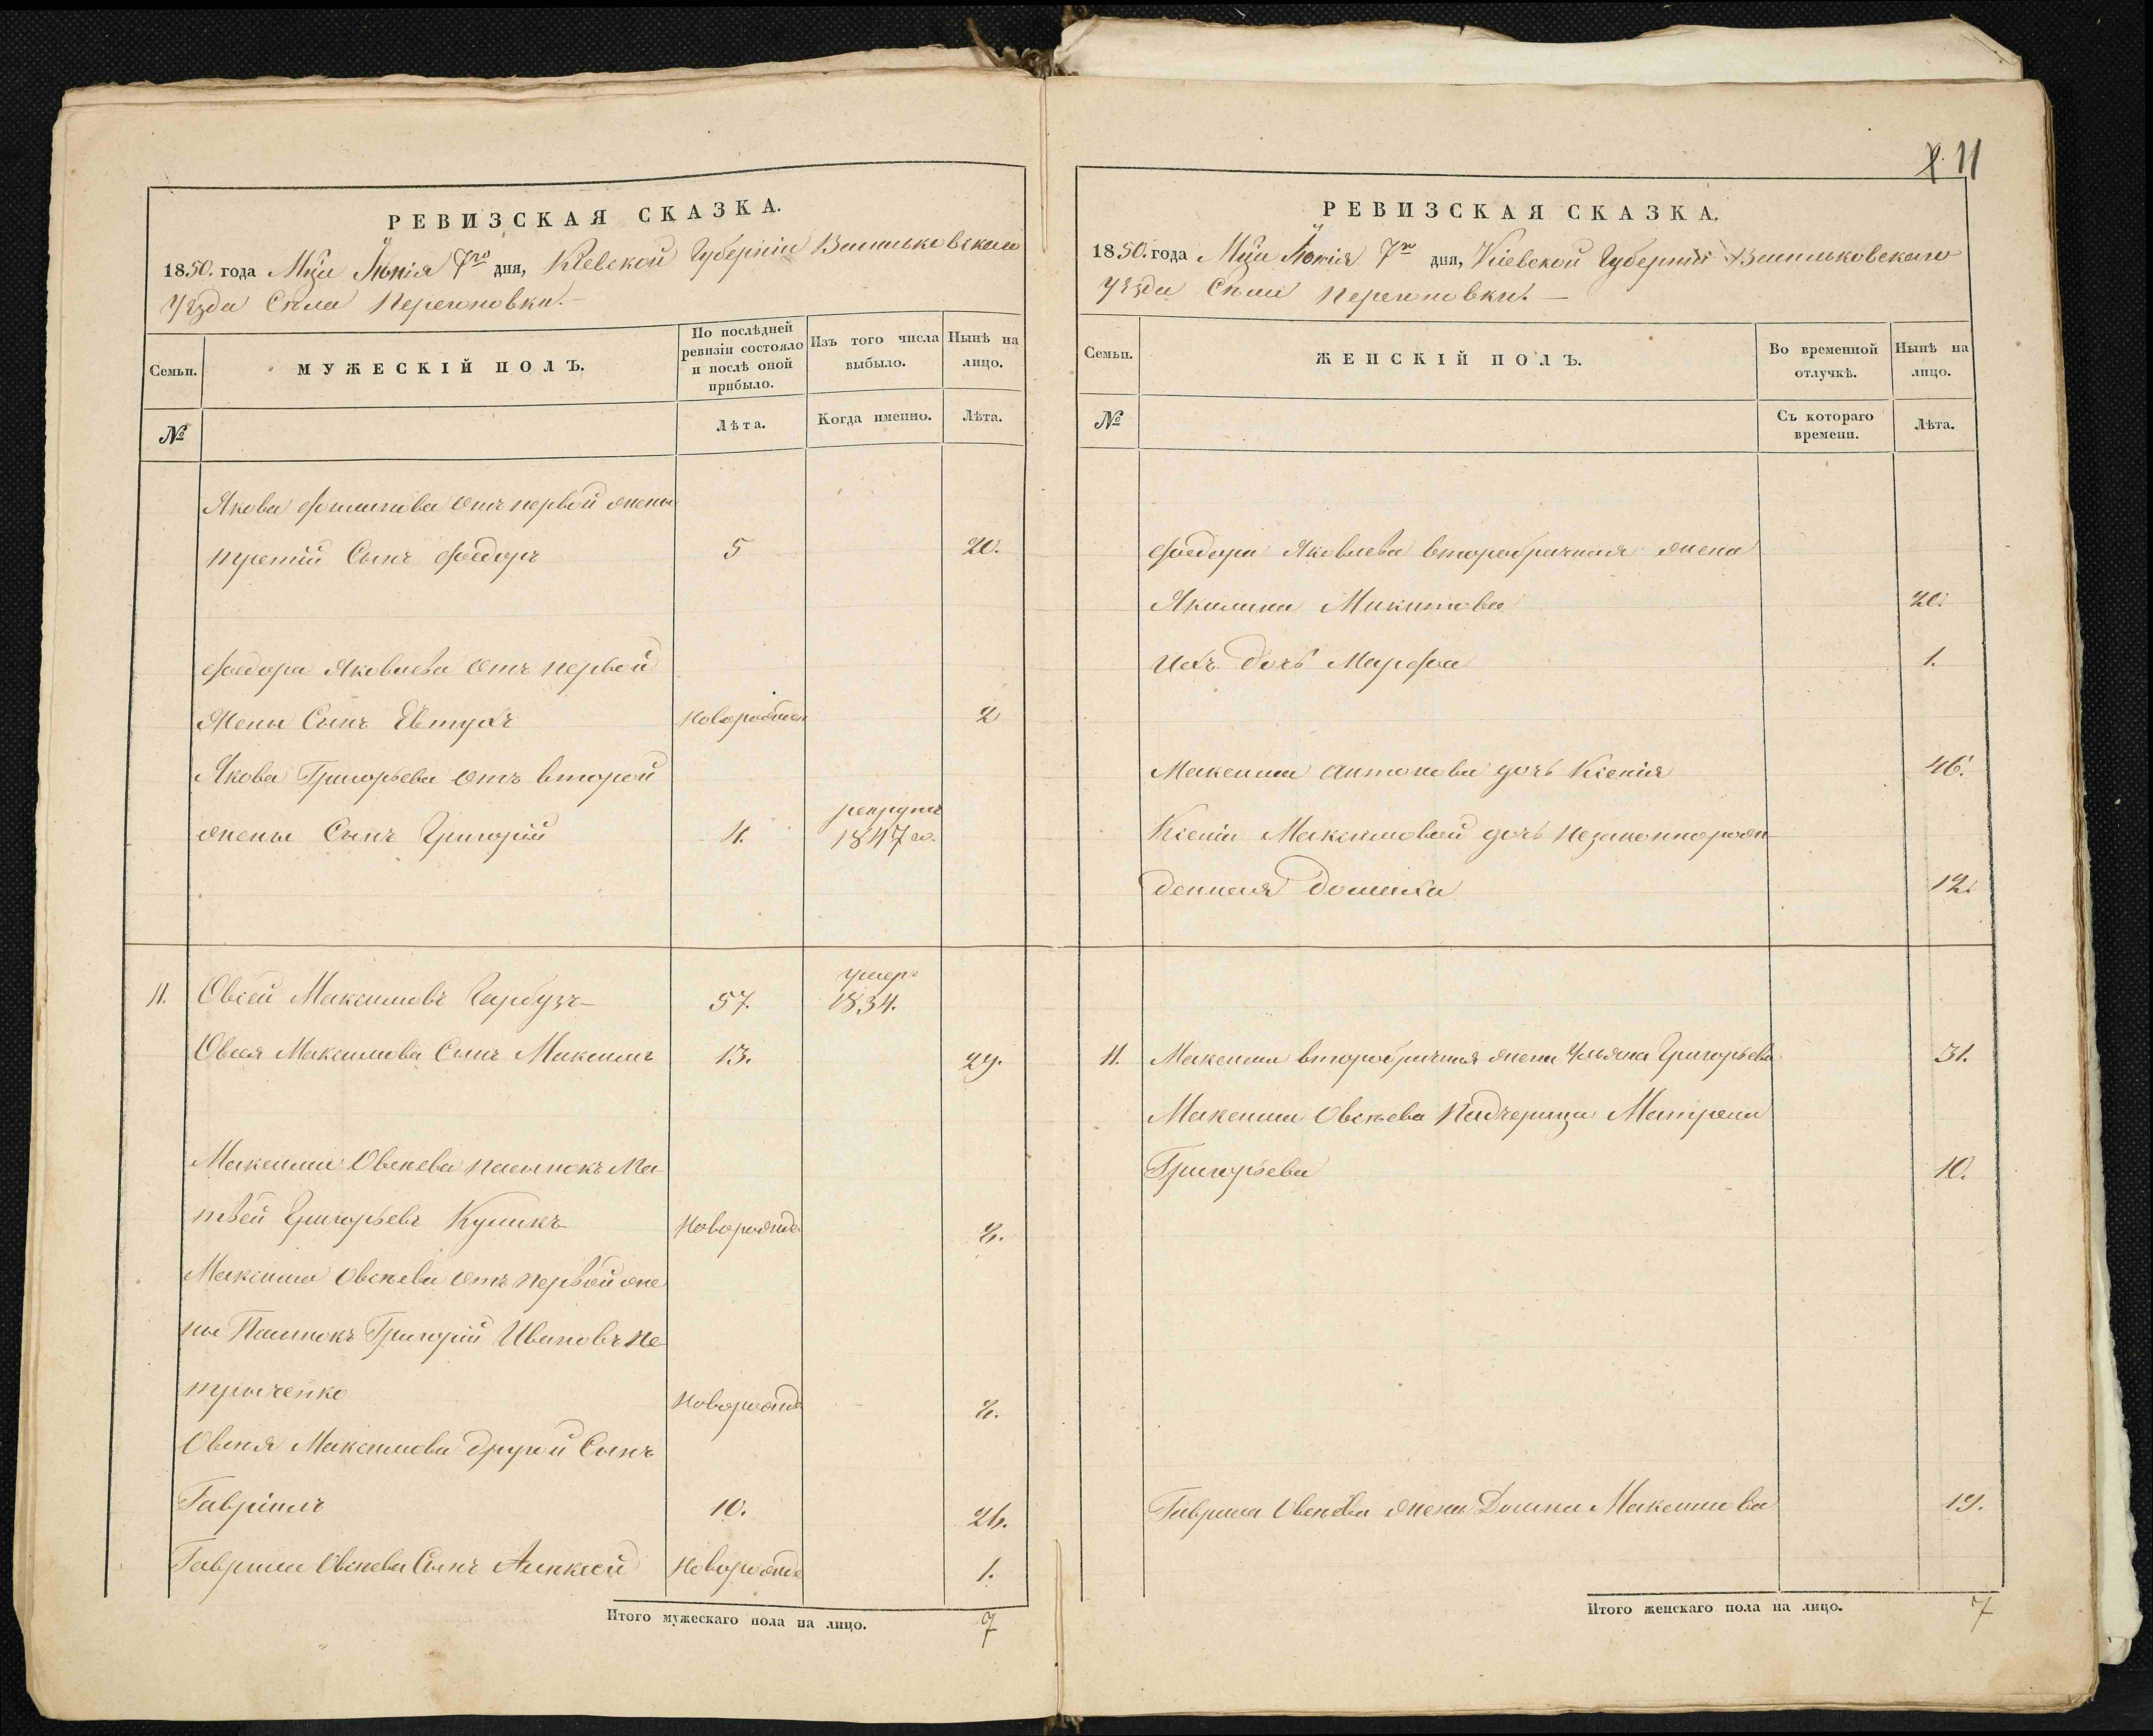 РЕВИЗСКАЯ СКАЗКА.
1850. года Мца Іюнія 7го дня, Кіевской Губерніи Васильковскаго
уѣзда Села Перегоновки. —
Семьи.
МУЖЕСКІЙ ПОЛЪ.
По послѣдней ревизіи состояло и послѣ оной прибыло.
Изъ того числа выбыло.
Нынѣ на лицо.
№
Лѣта.
Когда именно.
Лѣта.
Якова от первой жены
третій Сынъ Феодоръ 5 20.
Феодора Яковлева отъ первой
жены Сынъ Евтухъ Новорожден 2
Якова Григорьева отъ второй
рекрутъ
жены Сынъ Григорій 4. 1847го.
умеръ
11. Овсей Максимовъ Гарбузъ 57. 1834.
Овсея Максимова Сынъ Максимъ 13. 29.
Максима Овсѣева пасынокъ Ма-
твей Григорьевъ Куликъ Новорожд
Максима Овсѣева отъ первой же
ны Пасынокъ Григорій Ивановъ Пе-
триченко Новорожд
Овсея Максимова другой Сынъ
Гавріилъ 10. 26.
Гаврила Овсѣева Сынъ Алексѣй Новорожд 1.
Итого мужескаго пола на лицо. 7
11
РЕВИЗСКАЯ СКАЗКА.
1850. года Мца Іюнія 7го дня, Кіевской Губерніи Васильковскаго
уѣзда Села Перегоновки. —
Семьи.
ЖЕНСКІЙ ПОЛЪ.
Во временной отлучкѣ.
Нынѣ на лицо.
№
Съ котораго времени.
Лѣта.
Феодора Яковлева второбрачная жена
Акилина Микитова 20.
Ихъ дочь Марфа 1.
Максима Антонова дочь Ксенія 46.
Ксеніи Максимовой дочь незаконнорож
денная Домникія 12.
11. Максима второбрачная жена Ульяна Григорьева 31.
Максима Овсѣева Падчерица Матрона
Григорьева 10.
Гаврила Овсѣева жена Домна Максимова 19.
Итого женскаго пола на лицо. 7